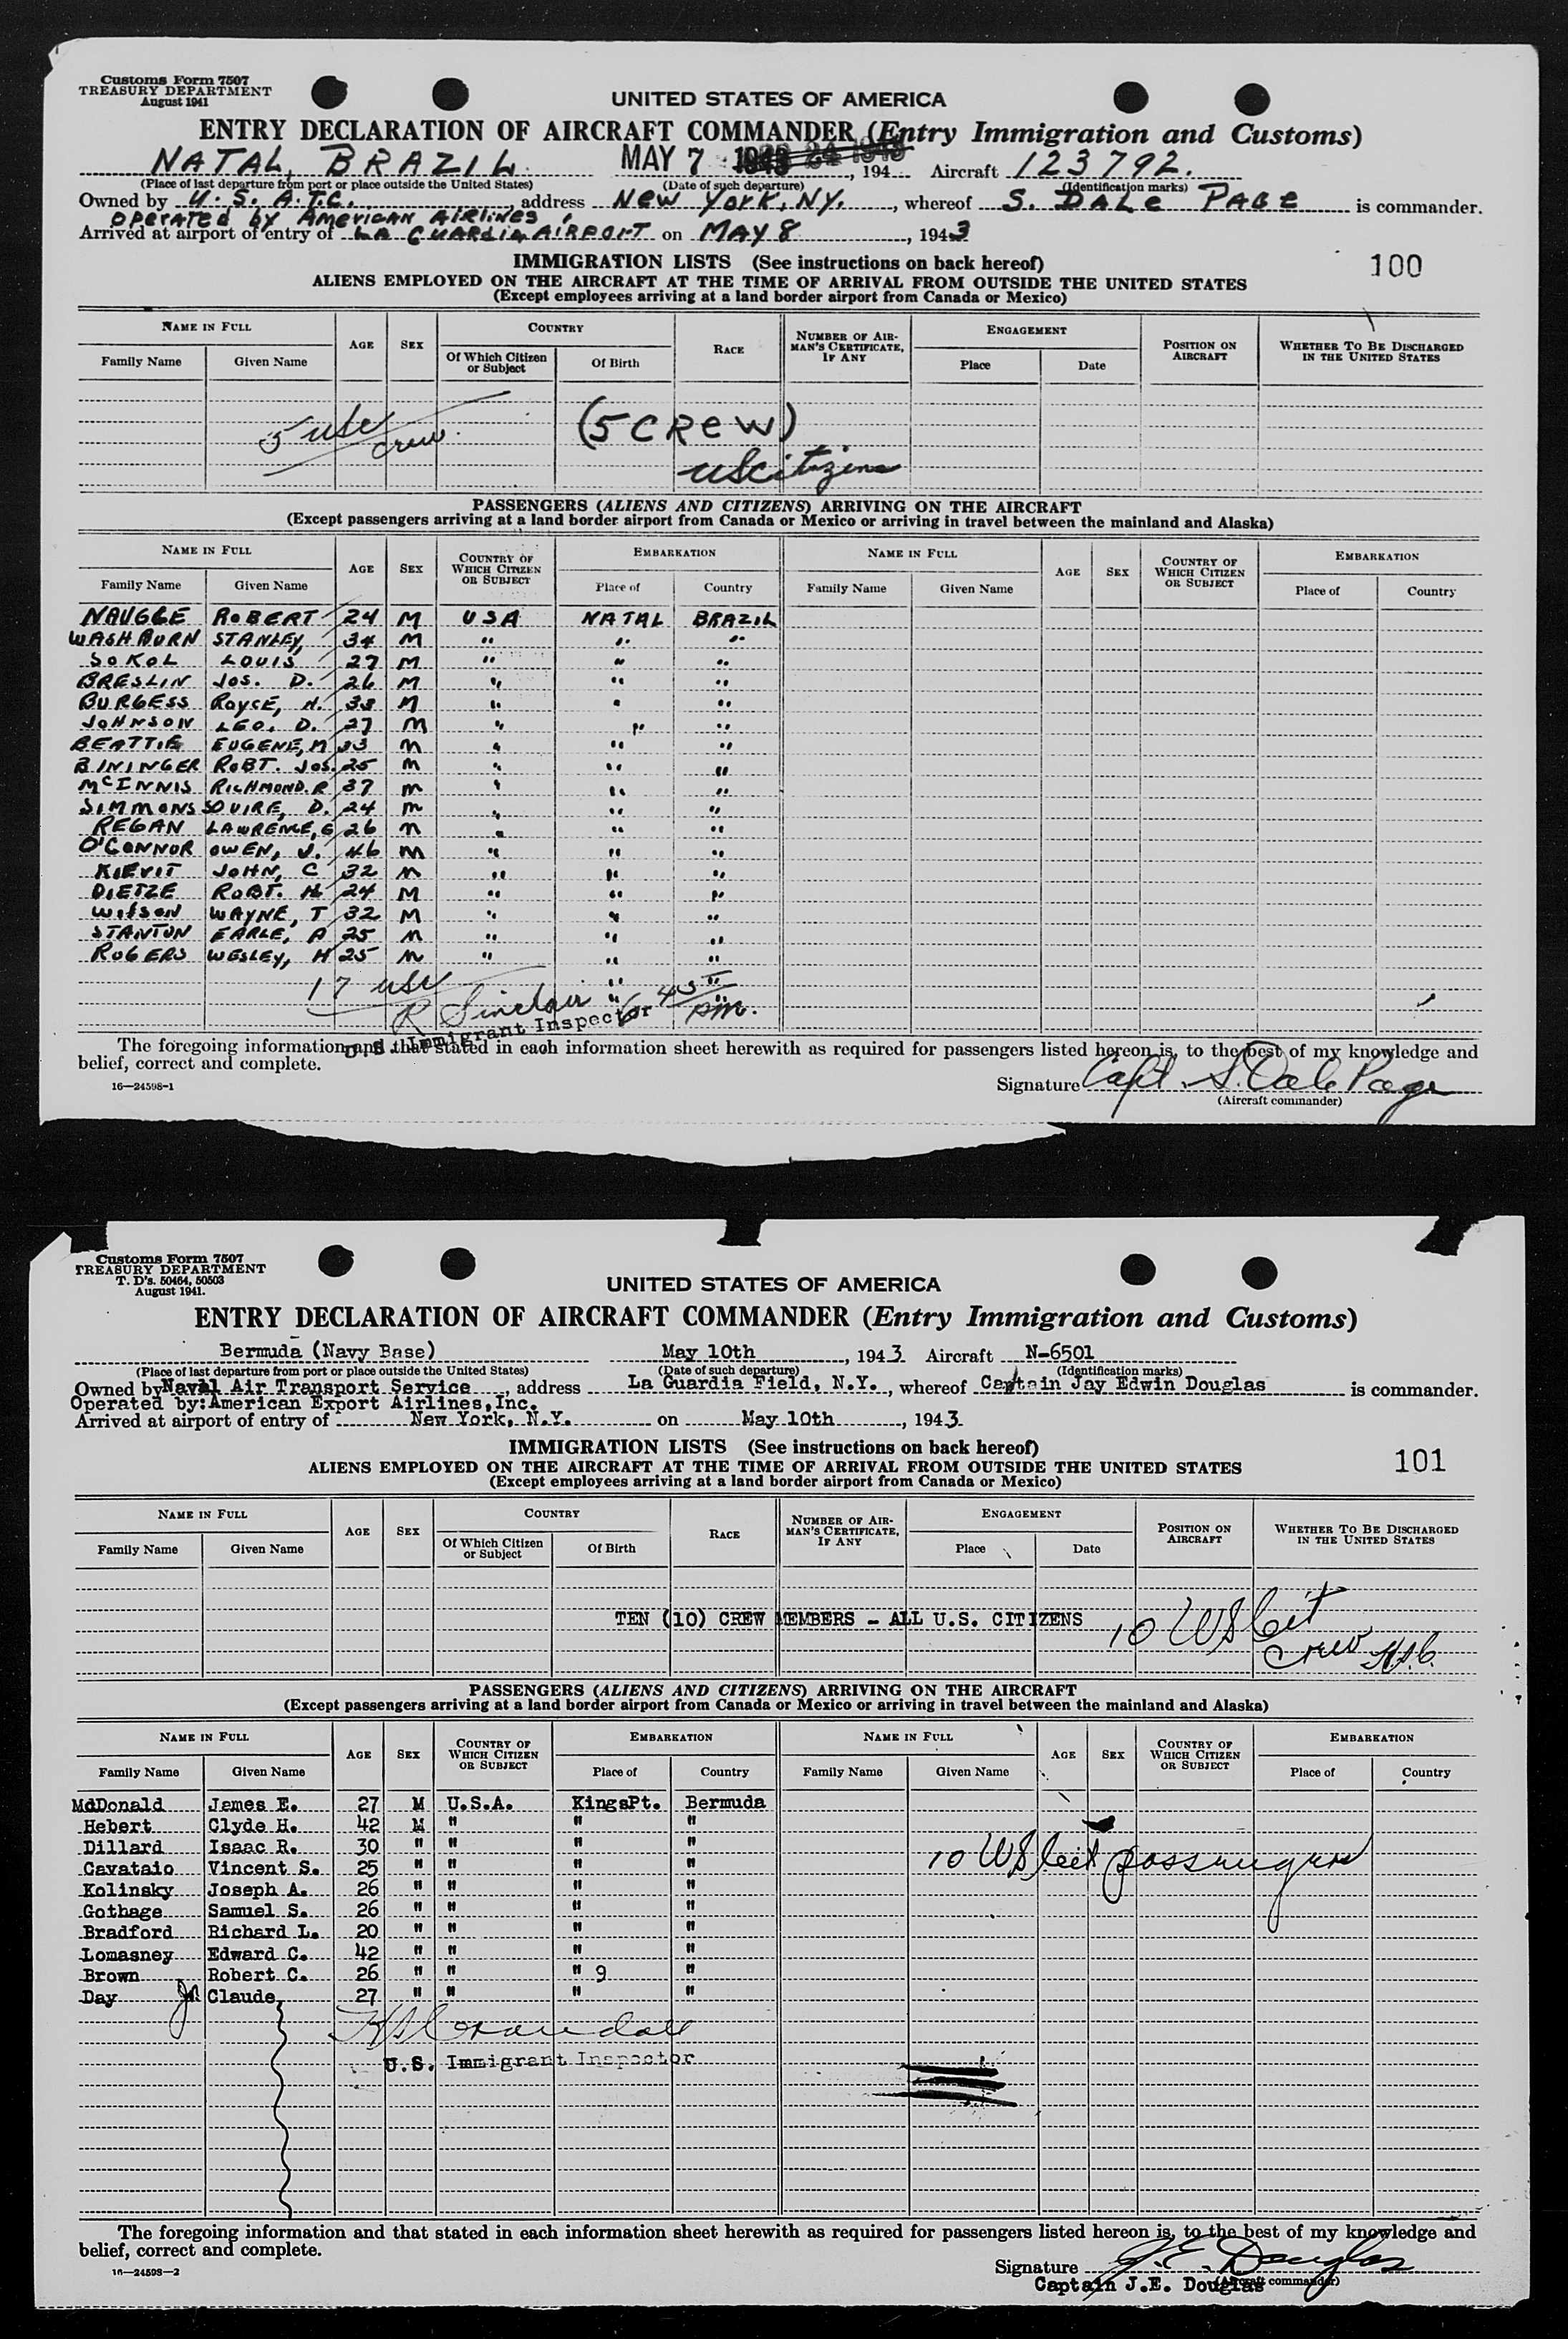 Customs Form 7507
TREASURY DEPARTMENT
August 1941
UNITED STATES OF AMERICA
ENTRY DECLARATION OF AIRCRAFT COMMANDER (Entry Immigration and Customs)
NATAL, BRAZIL. MAY 7 1943, 194 Aircraft 123792.
(Place of last departure from port or place outside the United States) (Date of such departure) (Identification marks)
Owned by U.S.A.T.C., address New York, NY., whereof S. DALE PAGE is commander.
OPerated by AMERICAN AIRLINES,
Arrived at airport of entry of LA GUARDIA AIRPORT on MAY 8, 1943
IMMIGRATION LISTS (See instructions on back hereof) 100
ALIENS EMPLOYED ON THE AIRCRAFT AT THE TIME OF ARRIVAL FROM OUTSIDE THE UNITED STATES
(Except employees arriving at a land border airport from Canada or Mexico)
NAME IN FULL AGE SEX COUNTRY RACE NUMBER OF AIRMAN'S CERTIFICATE, IF ANY ENGAGEMENT POSITION ON AIRCRAFT WHETHER TO BE DISCHARGED IN THE UNITED STATES
Family Name Given Name Of Which Citizen or Subject Of Birth Place Date
5 usc crew. (5 CREW)
US citizens
PASSENGERS (ALIENS AND CITIZENS) ARRIVING ON THE AIRCRAFT
(Except passengers arriving at a land border airport from Canada or Mexico or arriving in travel between the mainland and Alaska)
NAME IN FULL AGE SEX COUNTRY OF WHICH CITIZEN OR SUBJECT EMBARKATION NAME IN FULL AGE SEX COUNTRY OF WHICH CITIZEN OR SUBJECT EMBARKATION
Family Name Given Name Place of Country Family Name Given Name Place of Country
NAUGGE ROBERT 24 M USA NATAL BRAZIL
WASHBURN STANLEY, 34 M " " "
SOKOL LOUIS 27 M " " "
BRESLIN JOS. D. 26 M " " "
BURGESS ROYCE, H. 38 M " " "
JOHNSON LEO. D. 27 M " " "
BEATTIE EUGENE, M 33 M " " "
BININGER ROBT. JOS. 25 M " " "
McINNIS RICHMOND. R 37 M " " "
SIMMONS SQUIRE, D. 24 M " " "
REGAN LAWRENCE, G 26 M " " "
O'CONNOR OWEN, J. 46 M " " "
KIEVIT JOHN, C 32 M " " "
DIETZE ROBT. H 24 M " " "
WILSON WAYNE, T 32 M " " "
STANTON EARLE, A 25 M " " "
ROGERS WESLEY, H 25 M " " "
17 usc " "
R Sinclair " 6 45 pm.
U.S. Immigrant Inspector
The foregoing information and that stated in each information sheet herewith as required for passengers listed hereon is, to the best of my knowledge and
belief, correct and complete.
16—24598-1 Signature Capt. S. Dale Page
(Aircraft commander)
Customs Form 7507
TREASURY DEPARTMENT
T. D's. 50464, 50503
August 1941.
UNITED STATES OF AMERICA
ENTRY DECLARATION OF AIRCRAFT COMMANDER (Entry Immigration and Customs)
Bermuda (Navy Base) May 10th, 1943 Aircraft N-6501
(Place of last departure from port or place outside the United States) (Date of such departure) (Identification marks)
Owned by Naval Air Transport Service, address La Guardia Field, N.Y., whereof Captain Jay Edwin Douglas is commander.
Operated by: American Export Airlines, Inc.
Arrived at airport of entry of New York, N.Y. on May 10th, 1943
IMMIGRATION LISTS (See instructions on back hereof) 101
ALIENS EMPLOYED ON THE AIRCRAFT AT THE TIME OF ARRIVAL FROM OUTSIDE THE UNITED STATES
(Except employees arriving at a land border airport from Canada or Mexico)
NAME IN FULL AGE SEX COUNTRY RACE NUMBER OF AIRMAN'S CERTIFICATE, IF ANY ENGAGEMENT POSITION ON AIRCRAFT WHETHER TO BE DISCHARGED IN THE UNITED STATES
Family Name Given Name Of Which Citizen or Subject Of Birth Place Date
TEN (10) CREW MEMBERS - ALL U.S. CITIZENS 10 US Cit
Crew
PASSENGERS (ALIENS AND CITIZENS) ARRIVING ON THE AIRCRAFT
(Except passengers arriving at a land border airport from Canada or Mexico or arriving in travel between the mainland and Alaska)
NAME IN FULL AGE SEX COUNTRY OF WHICH CITIZEN OR SUBJECT EMBARKATION NAME IN FULL AGE SEX COUNTRY OF WHICH CITIZEN OR SUBJECT EMBARKATION
Family Name Given Name Place of Country Family Name Given Name Place of Country
MdDonald James E. 27 M U.S.A. KingsPt. Bermuda
Hebert Clyde H. 42 M " " "
Dillard Isaac R. 30 " " " "
Cavataio Vincent S. 25 " " " " 10 US Cit passengers
Kolinsky Joseph A. 26 " " " "
Gothage Samuel S. 26 " " " "
Bradford Richard L. 20 " " " "
Lomasney Edward C. 42 " " " "
Brown Robert C. 26 " " " 9 "
Day Jr Claude 27 " " " "
U.S. Immigrant Inspector
The foregoing information and that stated in each information sheet herewith as required for passengers listed hereon is, to the best of my knowledge and
belief, correct and complete.
16—24598—2 Signature J. E. Douglas
Captain J.E. Douglas (Aircraft commander)